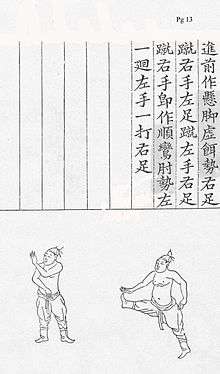 Pg 13
進前作懸脚虛餌勢右足
蹴右手左足蹴左手右足
蹴右手卽作順鸞肘勢左
一廻左手一打右足